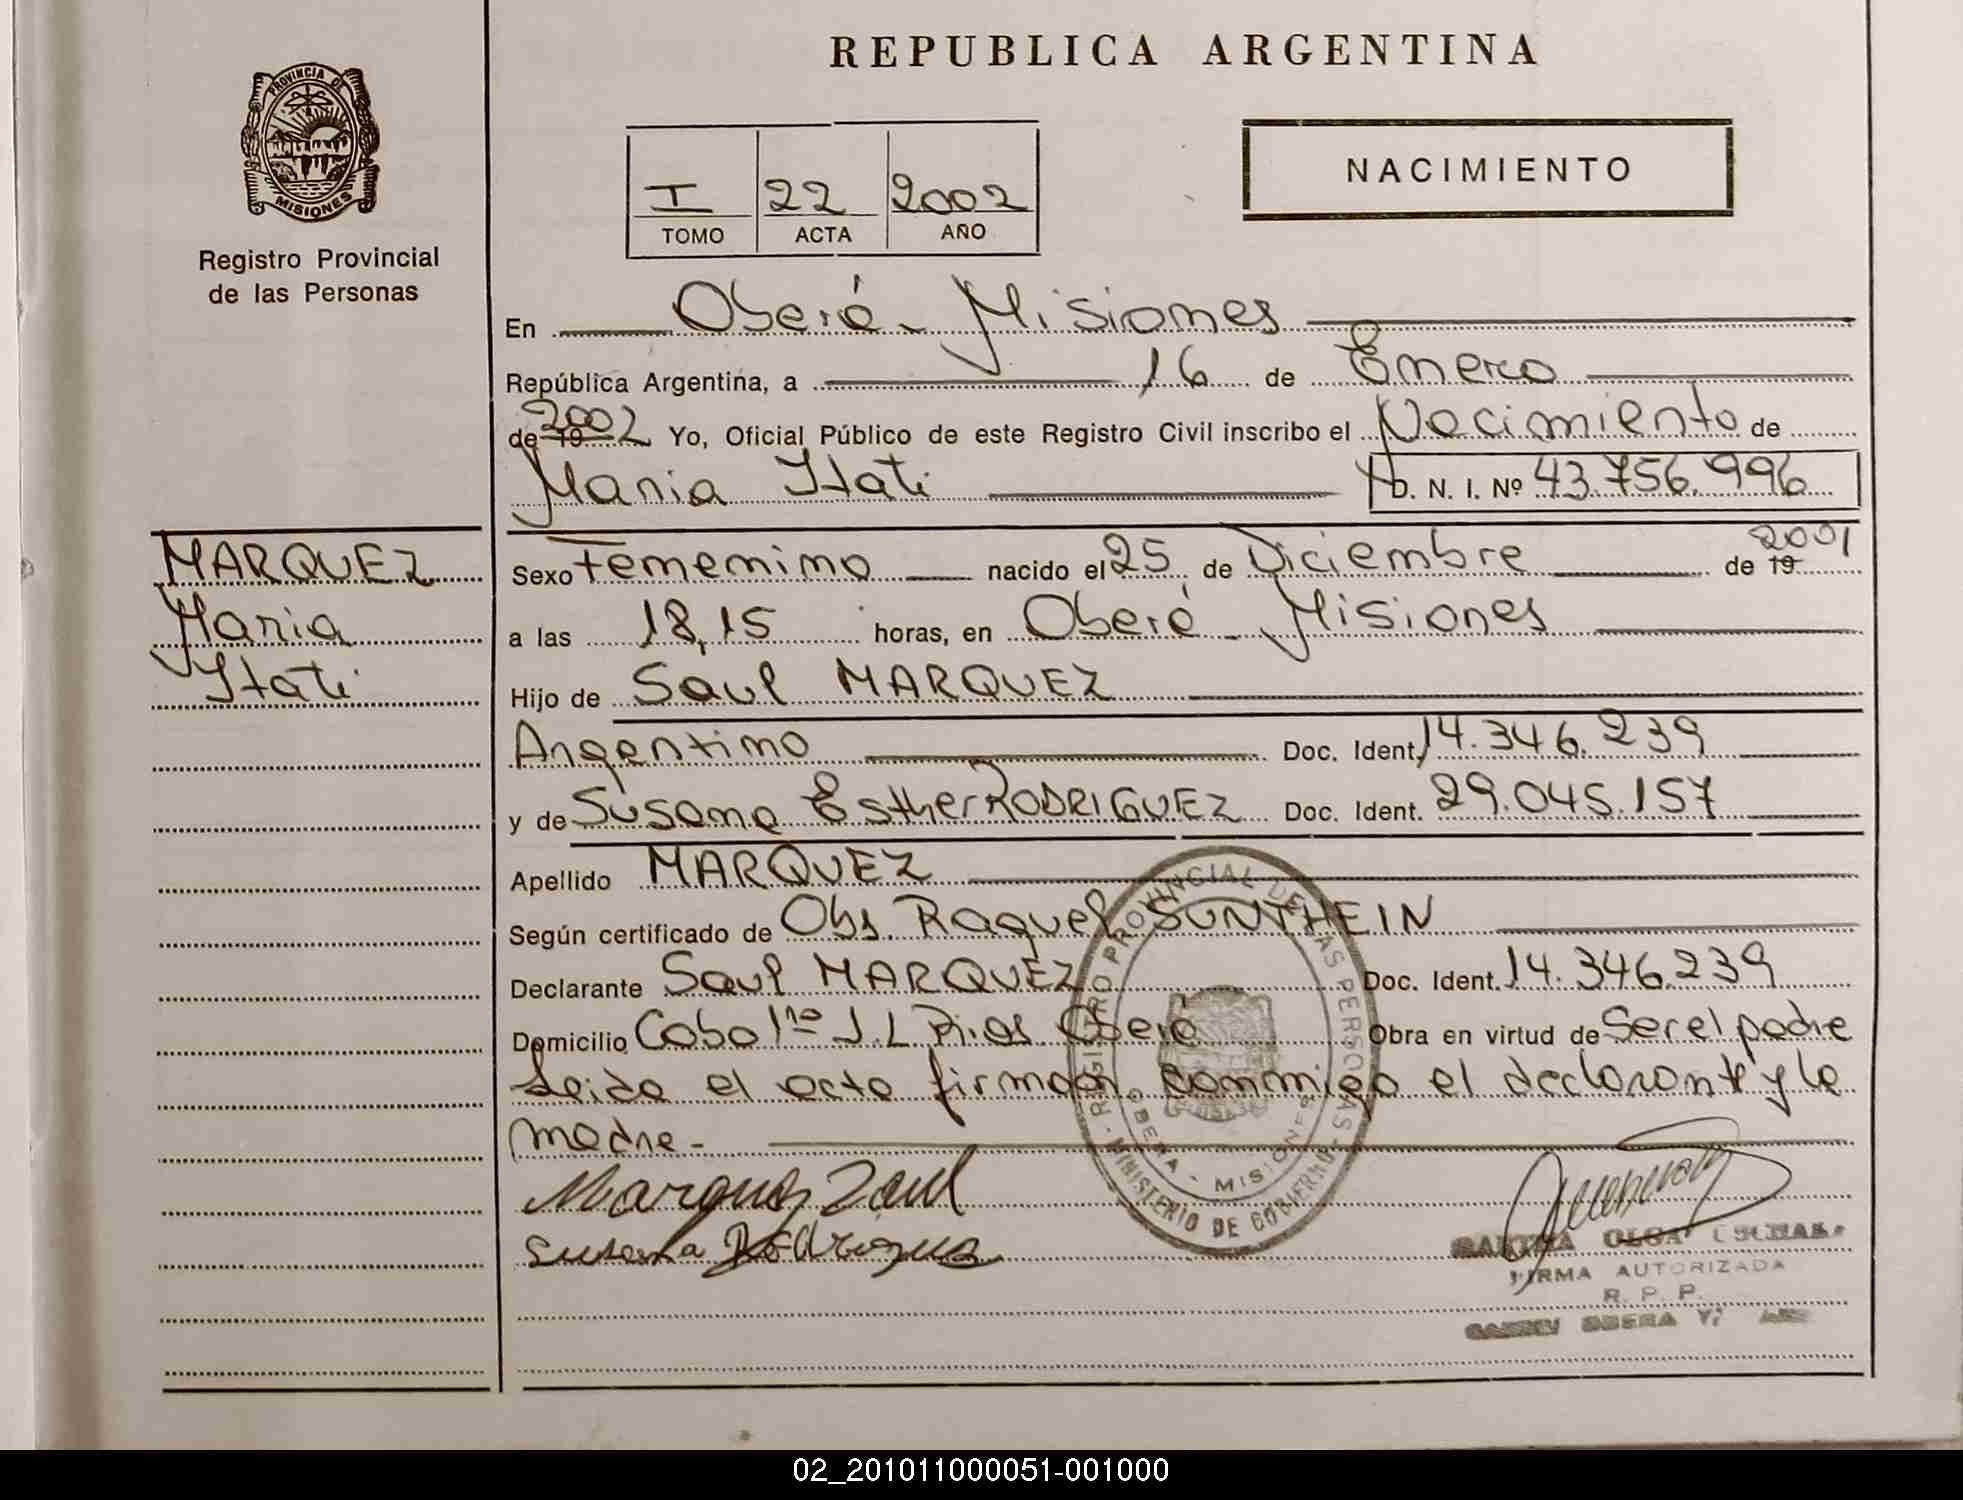 REPUBLICA ARGENTINA
PROVINCIA DE
MISIONES
Registro Provincial
de las Personas
I 22 2002
TOMO ACTA AÑO
NACIMIENTO
En Oberá - Misiones
República Argentina, a 16 de Enero
de 19 2002 Yo, Oficial Público de este Registro Civil inscribo el Nacimiento de
Maria Itati D. N. I. Nº 43.756.996
MARQUEZ
Maria
Itati
Sexo Femenino nacido el 25 de Diciembre de 19 2001
a las 18,15 horas, en Oberá - Misiones
Hijo de Saul MARQUEZ
Argentino Doc. Ident. 14.346.239
y de Susana Esther RODRIGUEZ Doc. Ident. 29.045.157
Apellido MARQUEZ
Según certificado de Obs. Raquel SUNTHEIN
Declarante Saul MARQUEZ Doc. Ident. 14.346.239
Domicilio Cabo 1ro J.L Rios Oberá Obra en virtud de Ser el padre
Leida el acta firman conmigo el declarante y la
madre -
Marquez Saul
Susana Rodriguez
REGISTRO PROVINCIAL DE LAS PERSONAS
OBERA - MISIONES
MINISTERIO DE GOBIERNO
OLGA
FIRMA AUTORIZADA
R. P. P.
OBERA
02_201011000051-001000